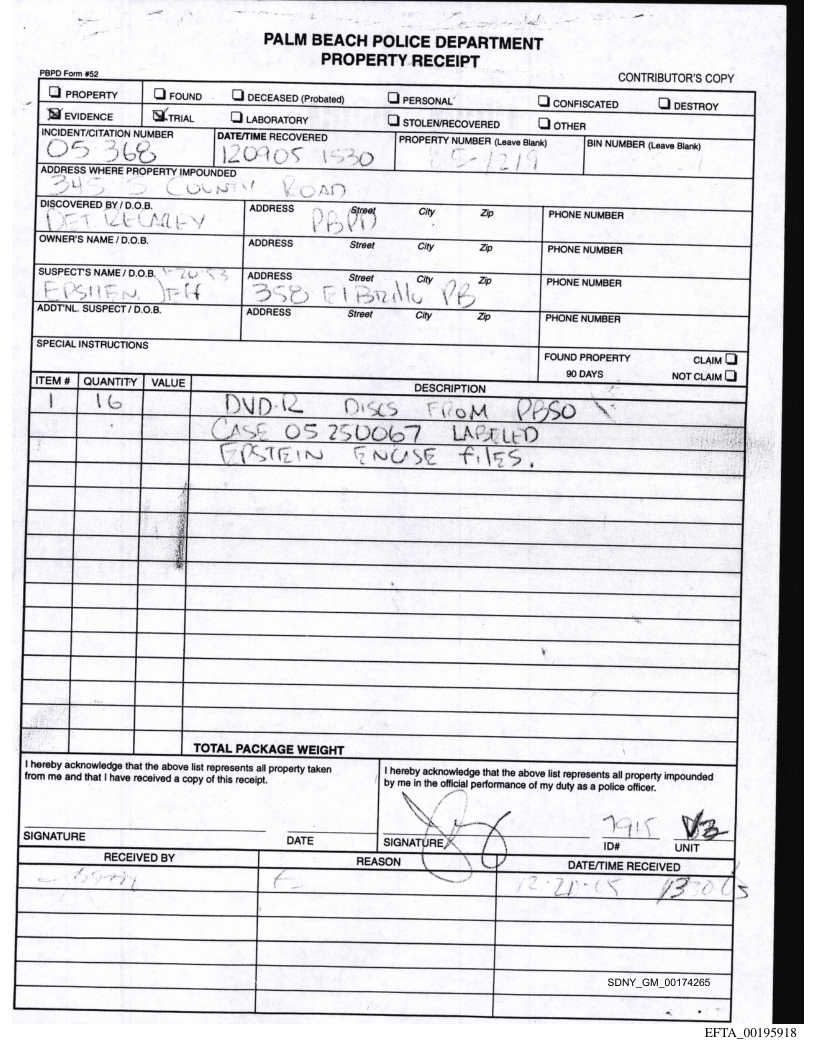 PALM BEACH POLICE DEPARTMENT
PROPERTY RECEIPT
PBPD Form #52
CONTRIBUTOR'S COPY
PROPERTY FOUND DECEASED (Probated) PERSONAL CONFISCATED DESTROY
EVIDENCE TRIAL LABORATORY STOLEN/RECOVERED OTHER
INCIDENT/CITATION NUMBER DATE/TIME RECOVERED PROPERTY NUMBER (Leave Blank) BIN NUMBER (Leave Blank)
05 368 120905 1530 5-1219
ADDRESS WHERE PROPERTY IMPOUNDED
345 S COUNTY ROAD
DISCOVERED BY / D.O.B. ADDRESS Street City Zip PHONE NUMBER
DET RECAREY PBPD
OWNER'S NAME / D.O.B. ADDRESS Street City Zip PHONE NUMBER
SUSPECT'S NAME / D.O.B. 1-20-53 ADDRESS Street City Zip PHONE NUMBER
Jeff 358 El Brillo PB
ADDT'NL. SUSPECT / D.O.B. ADDRESS Street City Zip PHONE NUMBER
SPECIAL INSTRUCTIONS
FOUND PROPERTY CLAIM
90 DAYS NOT CLAIM
ITEM # QUANTITY VALUE DESCRIPTION
1 16 DVD-R DISCS FROM PBSO
CASE 05250067 LABELED
EPSTEIN ENCASE FILES.
TOTAL PACKAGE WEIGHT
I hereby acknowledge that the above list represents all property taken
from me and that I have received a copy of this receipt.
I hereby acknowledge that the above list represents all property impounded
by me in the official performance of my duty as a police officer.
7915
SIGNATURE DATE SIGNATURE ID# UNIT
RECEIVED BY REASON DATE/TIME RECEIVED
SDNY_GM_00174265
EFTA_00195918